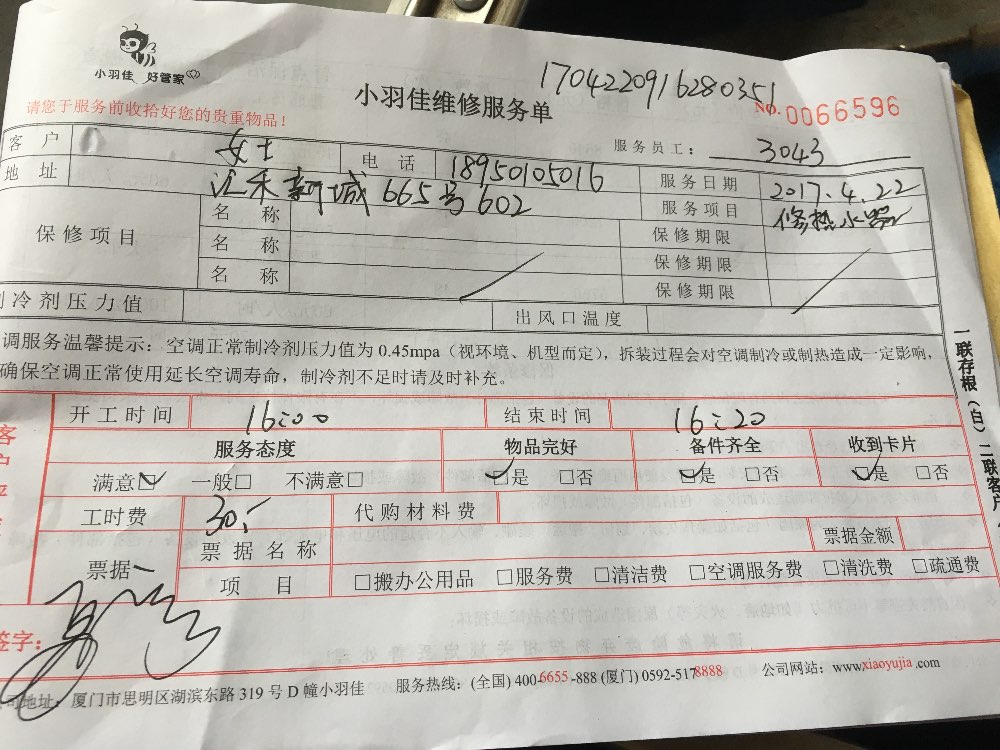 小羽佳 好管家
1704220916280351
小羽佳维修服务单
No. 0066596
请您于服务前收拾好您的贵重物品！
服务员工： 3043
客 户 女士 电 话 18950105016 服务日期 2017.4.22
地 址 汇禾新城665号602 服务项目 修热水器
保修项目 名 称 保修期限
名 称 保修期限
名 称 保修期限
冷剂压力值 出风口温度
调服务温馨提示：空调正常制冷剂压力值为0.45mpa（视环境、机型而定），拆装过程会对空调制冷或制热造成一定影响，
确保空调正常使用延长空调寿命，制冷剂不足时请及时补充。
开工时间 16:00 结束时间 16:20
服务态度 物品完好 备件齐全 收到卡片
满意☑ 一般□ 不满意□ ☑是 □否 ☑是 □否 ☑是 □否
工时费 30,- 代购材料费
票据 票据名称 票据金额
项 目 □搬办公用品 □服务费 □清洁费 □空调服务费 □清洗费 □疏通费
签字：
司地址：厦门市思明区湖滨东路319号D幢小羽佳 服务热线：(全国) 400-6655-888 (厦门) 0592-5178888 公司网站：www.xiaoyujia.com
一联存根（白）二联客户